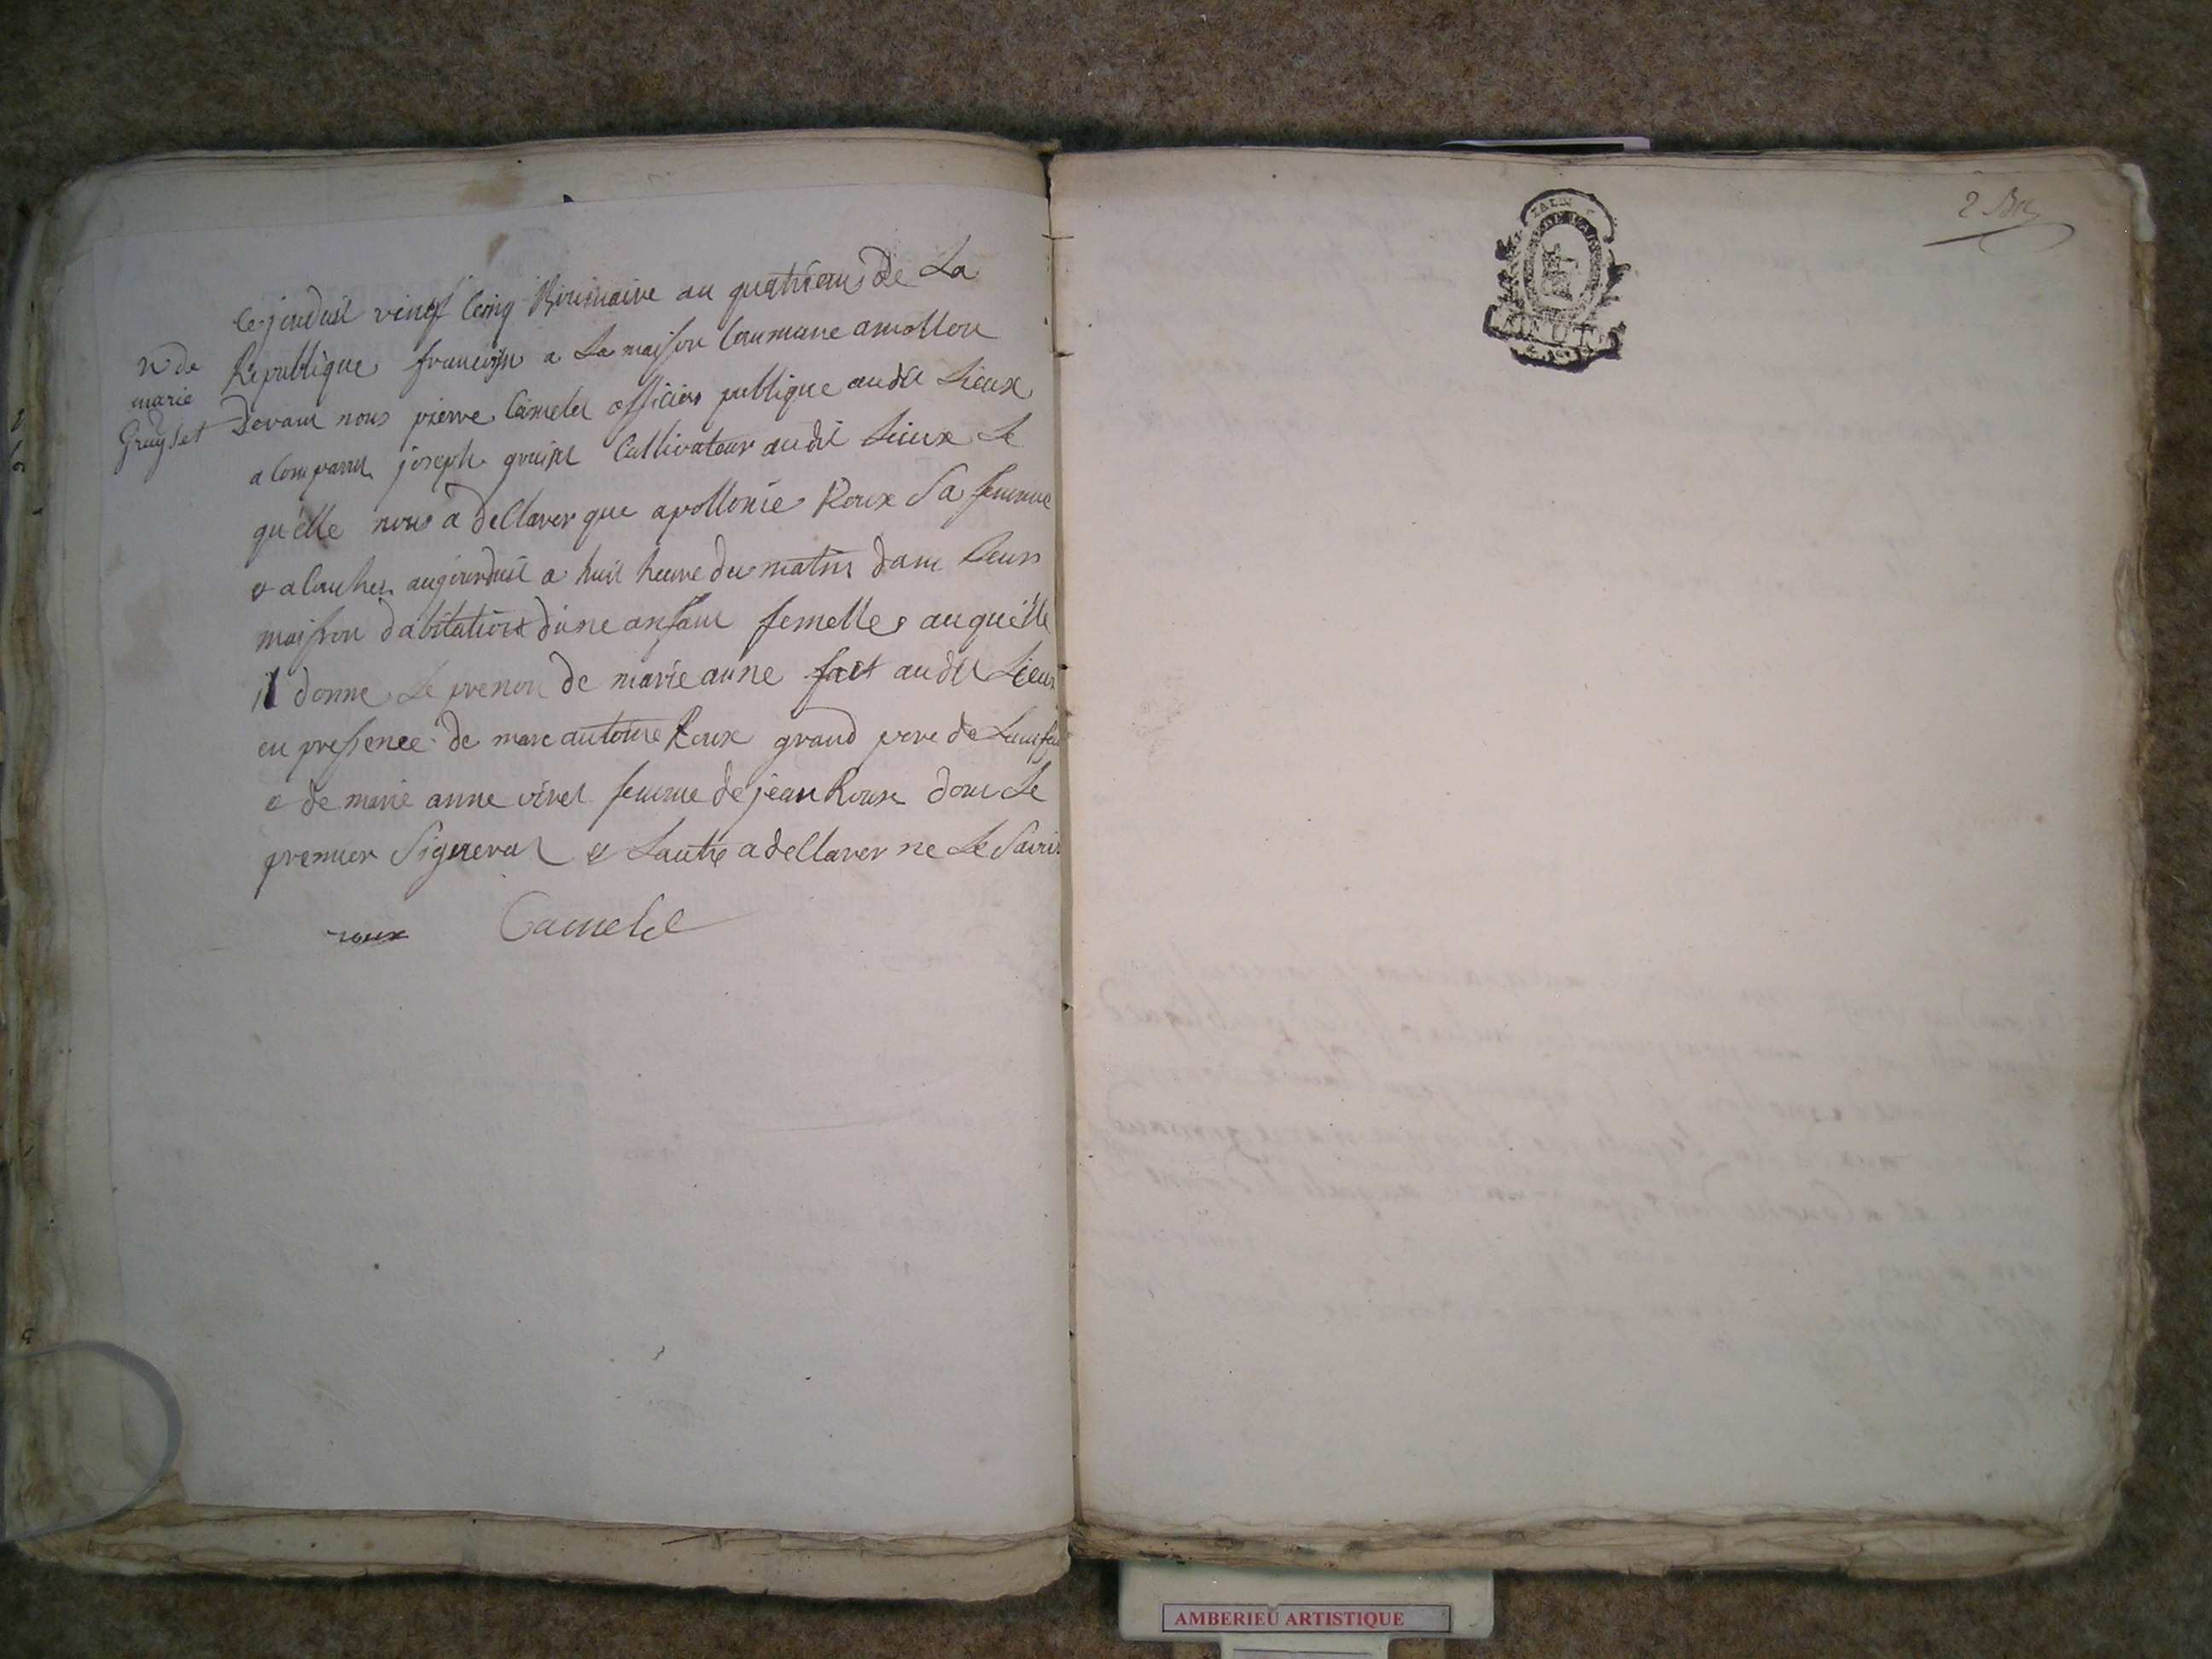 n de
marie
Gruyset
Ce jourduit vingt cinq Brumaire an quatrieme de La
Republique francoise a La maison Commune amollon
Devant nous pierre Camelet officier publique audit Lieux
a Comparut joseph gruiset Cultivateur audit Lieux Le
quelle nous a dellarer que apollonie Roux Sa femme
et alaucher augourduit a huit heure du matin dans leurs
maison dabitation dune anfant femelle auquelle
il donne Le prenon de marie anne fait audit Lieux
en pressence de marc antoine Roux grand pere de Lanfan
et de marie anne vivet femme de jean Roux dont Le
premier Signerat et Lautre a dellarer ne Le Savoir
roux Camelet
2
AMBERIEU ARTISTIQUE